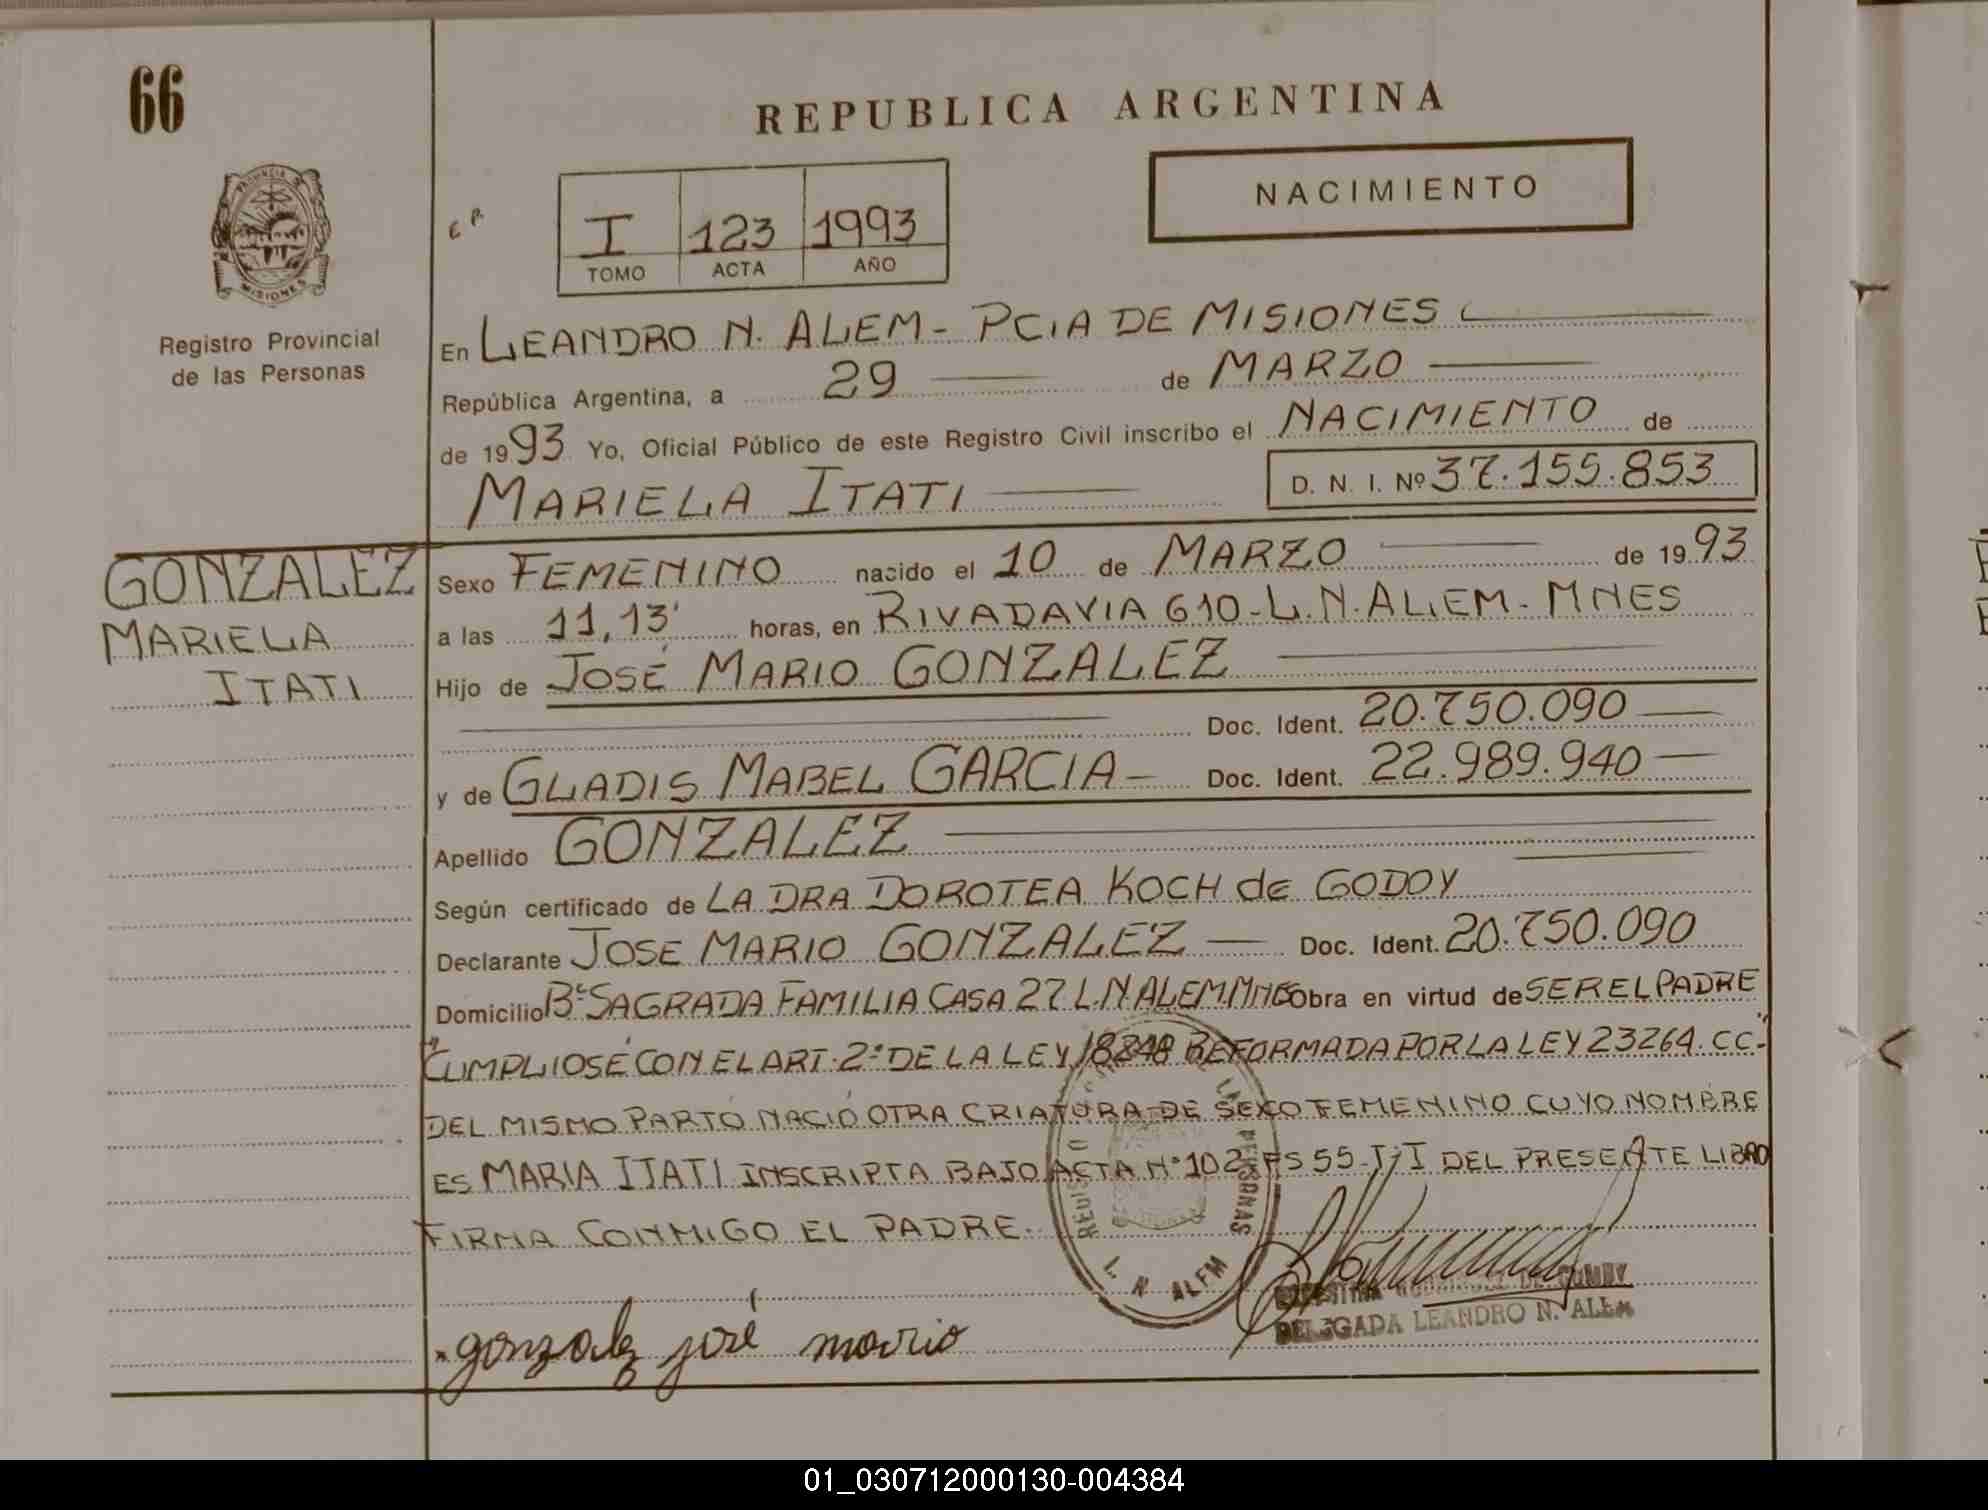 66
REPUBLICA ARGENTINA
NACIMIENTO
PROVINCIA DE
MISIONES
Registro Provincial
de las Personas
I 123 1993
TOMO ACTA AÑO
En LEANDRO N. ALEM - PCIA DE MISIONES
República Argentina, a 29 de MARZO
de 1993 Yo, Oficial Público de este Registro Civil inscribo el NACIMIENTO de
MARIELA ITATI D. N. I. Nº 37.155.853
GONZALEZ
MARIELA
ITATI
Sexo FEMENINO nacido el 10 de MARZO de 1993
a las 11,13' horas, en RIVADAVIA 610 - L.N. ALEM - MNES
Hijo de JOSÉ MARIO GONZALEZ
Doc. Ident. 20.750.090
y de GLADIS MABEL GARCIA - Doc. Ident. 22.989.940
Apellido GONZALEZ
Según certificado de LA DRA DOROTEA KOCH de GODOY
Declarante JOSE MARIO GONZALEZ - Doc. Ident. 20.750.090
Domicilio Bº SAGRADA FAMILIA CASA 27 L.N. ALEM. MNES Obra en virtud de SER EL PADRE
"CUMPLIOSE CON EL ART. 2º DE LA LEY 18248 REFORMADA POR LA LEY 23264. CC."
DEL MISMO PARTO NACIÓ OTRA CRIATURA DE SEXO FEMENINO CUYO NOMBRE
ES MARIA ITATI INSCRIPTA BAJO ACTA Nº 102 FS 55 - Tº I DEL PRESENTE LIBRO
FIRMA CONMIGO EL PADRE.
PERSONAS
L. N. ALEM
DELEGADA LEANDRO N. ALEM
gonzalez josé mario
01_030712000130-004384